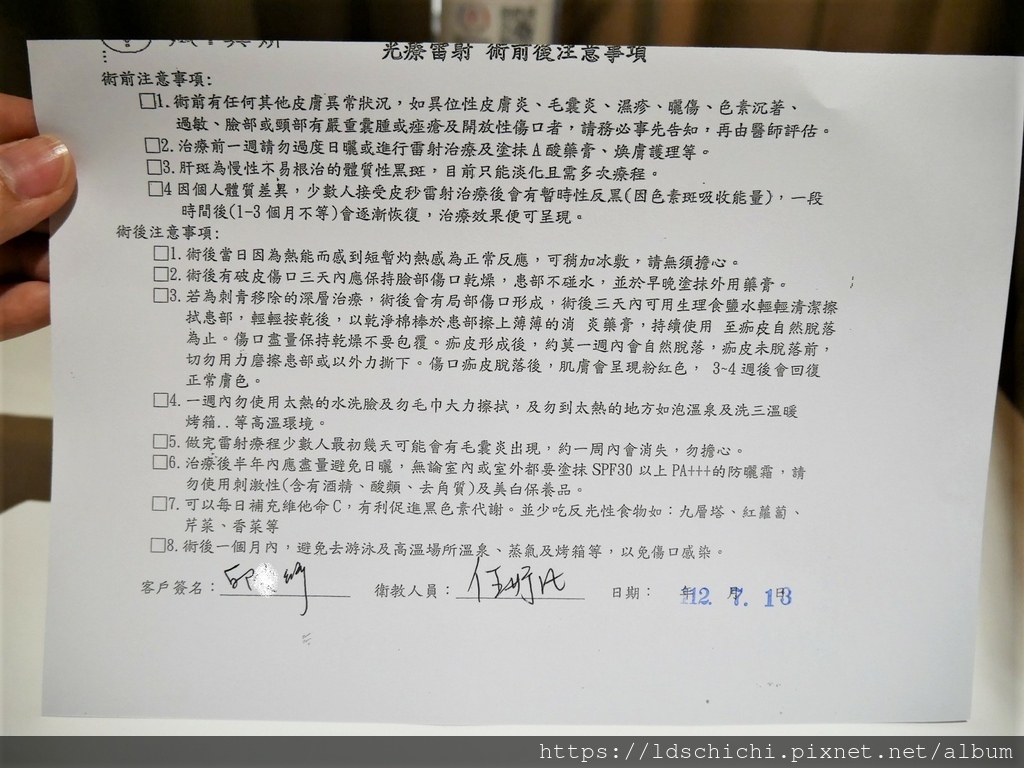 光療雷射 術前後注意事項
術前注意事項:
□1.術前有任何其他皮膚異常狀況，如異位性皮膚炎、毛囊炎、濕疹、曬傷、色素沉著、
過敏、臉部或頸部有嚴重囊腫或痤瘡及開放性傷口者，請務必事先告知，再由醫師評估。
□2.治療前一週請勿過度日曬或進行雷射治療及塗抹A酸藥膏、煥膚護理等。
□3.肝斑為慢性不易根治的體質性黑斑，目前只能淡化且需多次療程。
□4因個人體質差異，少數人接受皮秒雷射治療後會有暫時性反黑(因色素斑吸收能量)，一段
時間後(1-3個月不等)會逐漸恢復，治療效果便可呈現。
術後注意事項:
□1.術後當日因為熱能而感到短暫灼熱感為正常反應，可稍加冰敷，請無須擔心。
□2.術後有破皮傷口三天內應保持臉部傷口乾燥，患部不碰水，並於早晚塗抹外用藥膏。
□3.若為刺青移除的深層治療，術後會有局部傷口形成，術後三天內可用生理食鹽水輕輕清潔擦
拭患部，輕輕按乾後，以乾淨棉棒於患部擦上薄薄的消 炎藥膏，持續使用 至痂皮自然脫落
為止。傷口盡量保持乾燥不要包覆。痂皮形成後，約莫一週內會自然脫落，痂皮未脫落前，
切勿用力磨擦患部或以外力撕下。傷口痂皮脫落後，肌膚會呈現粉紅色， 3~4週後會回復
正常膚色。
□4.一週內勿使用太熱的水洗臉及勿毛巾大力擦拭，及勿到太熱的地方如泡溫泉及洗三溫暖
烤箱..等高溫環境。
□5.做完雷射療程少數人最初幾天可能會有毛囊炎出現，約一周內會消失，勿擔心。
□6.治療後半年內應盡量避免日曬，無論室內或室外都要塗抹SPF30以上PA+++的防曬霜，請
勿使用刺激性(含有酒精、酸類、去角質)及美白保養品。
□7.可以每日補充維他命C，有利促進黑色素代謝。並少吃反光性食物如：九層塔、紅蘿蔔、
芹菜、香菜等
□8.術後一個月內，避免去游泳及高溫場所溫泉、蒸氣及烤箱等，以免傷口感染。
客戶簽名： 衛教人員： 日期： 年 月 日 112. 7. 13
https://ldschichi.pixnet.net/album